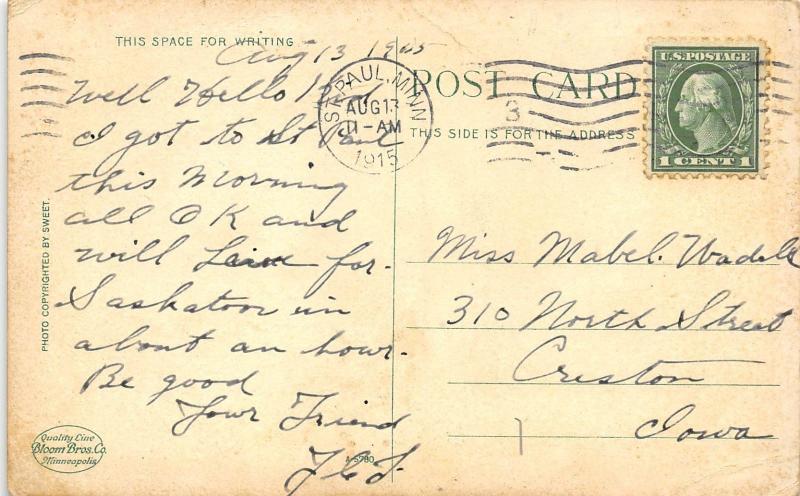 THIS SPACE FOR WRITING
Aug 13 1915
Well Hello Kid
I got to St Paul
this Morning
all OK and
will Leave for
Saskatoon in
about an hour.
Be good
Your Friend
PHOTO COPYRIGHTED BY SWEET.
Quality Line
Bloom Bros. Co.
Minneapolis
A-5780
ST. PAUL, MINN
AUG 13
11-AM
1915
3
POST CARD
THIS SIDE IS FOR THE ADDRESS
U.S. POSTAGE
1 CENT 1
Miss Mabel. Wadell
310 North Street
Creston
Iowa